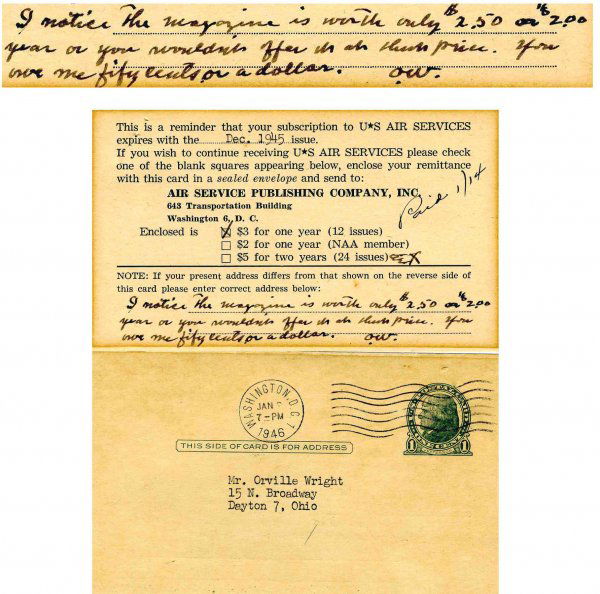 I notice the magazine is worth only $2.50 or $2.00
year or you wouldn't offer it at that price. You
owe me fifty cents or a dollar. OW.
This is a reminder that your subscription to U★S AIR SERVICES
expires with the Dec. 1945 issue.
If you wish to continue receiving U★S AIR SERVICES please check
one of the blank squares appearing below, enclose your remittance
with this card in a sealed envelope and send to:
AIR SERVICE PUBLISHING COMPANY, INC.
643 Transportation Building
Washington 6, D. C.
Paid 1/14
Enclosed is ☒ $3 for one year (12 issues)
☐ $2 for one year (NAA member)
☐ $5 for two years (24 issues) X
NOTE: If your present address differs from that shown on the reverse side of
this card please enter correct address below:
I notice the magazine is worth only $2.50 or $2.00
year or you wouldn't offer it at that price. You
owe me fifty cents or a dollar. OW.
WASHINGTON, D.C.
JAN
7-PM
1946
THIS SIDE OF CARD IS FOR ADDRESS
1 1
Mr. Orville Wright
15 N. Broadway
Dayton 7, Ohio